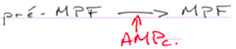 pré-MPF ⟶ MPF
AMPc.